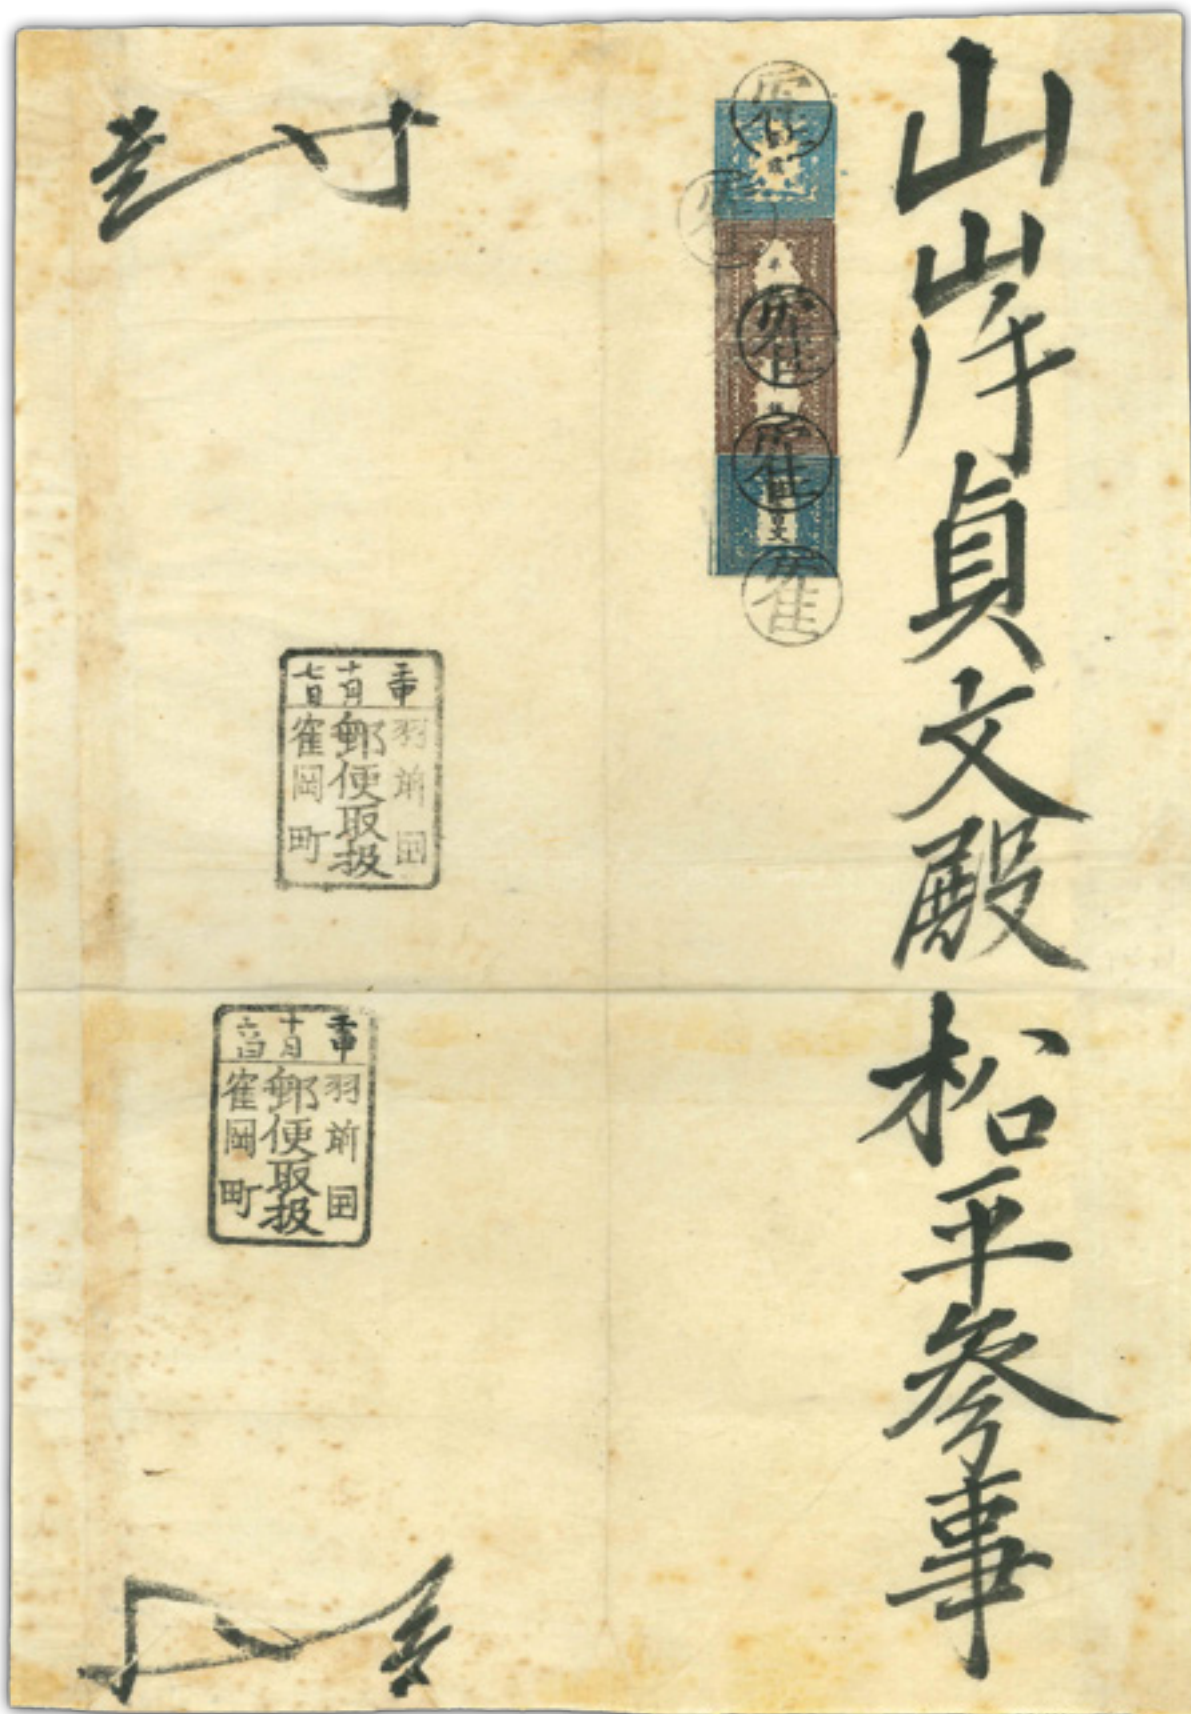 山岸貞文殿
松平参事
百文
隺
隺
隺
隺
壬申
十月
七日
羽前国
郵便取扱
隺岡町
壬申
十月
六日
羽前国
郵便取扱
隺岡町